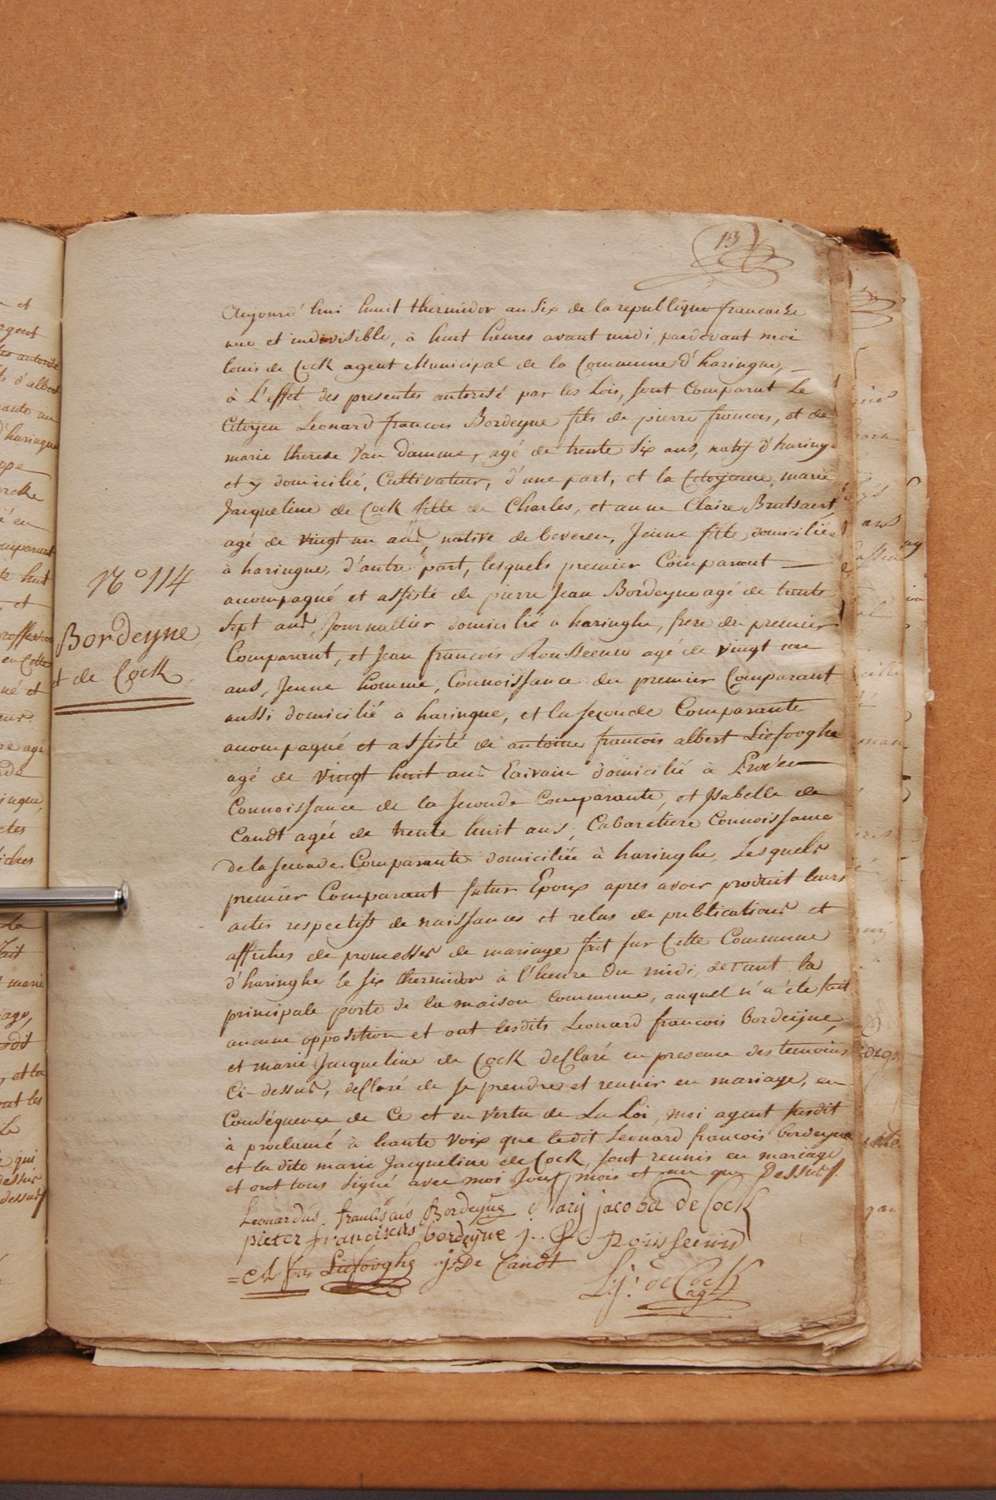 13
Aujourd'hui huit thermidor an six de la republique francaise
une et indivisible, à huit heures avant midi, pardevant moi
louis de Cock agent Municipal de la Commune d'haringue,
à L'effet des presentes autorisé par les Lois, sont Comparut Le
Citoyen Leonard francois Bordeyne fils de pierre francois, et de
marie therese Van damme, agé de trente Six ans, natif d'haringe
et y domicilié, Cultivateur, d'une part, et la Citoyenne marie
Jacqueline de Cock fille de Charles, et anne Claire Brutsaert
agé de vingt un ans native de beveren, Jeune fille domiciliée
à haringue, d'autre part, lesquels premier Comparant
acompagné et assisté de pierre Jean Bordeyne agé de trente
Sept ans, Journallier domicilié a haringhe, frere du premier
Comparant, et Jean francois Rousseeuw agé de vingt un
ans, Jeune homme, Connoissance du premier Comparant
aussi domicilié a haringue, et la seconde Comparante
acompagné et assisté de antoine francois albert Liefooghe
agé de vingt huit ans Ecrivain domicilié à Proven
Connoissance de la seconde Comparante, et Isabelle de
Candt agée de trente huit ans, Cabaretiere Connoissance
de la seconde Comparante domiciliée à haringhe, Lesquels
premier Comparant futur Epoux apres avoir produit leurs
actes respectifs de naissances et celus de publications et
affiches de promesses de mariage fait sur Cette Commune
d'haringhe le six thermidor à l'heure du midi devant la
principale porte de la maison Commune, auquel n'a été fait
aucune opposition et ont lesdits Leonard francois bordeijne,
et marie Jacqueline de Cock declaré en presence des temoins
Ci-dessus, declaré de se prendre et reunir en mariage, en
Conséquence de Ce et en vertu de La Loi, moi agent susdit
à proclamé à haute voix que ledit Leonard francois bordeyne
et ladite marie Jacqueline de Cock, sont reunis en mariage
et ont tous signé avec moi Jour, mois et an que Dessus
N° 114
Bordeyne
et de Cock
Leonardus francisus Bordeyne Marij jacoba de Cock
pieter franciscus bordeyne j. f. rousseeuw
A frs Liefooghe js De Candt
L. j. de Cock
agt